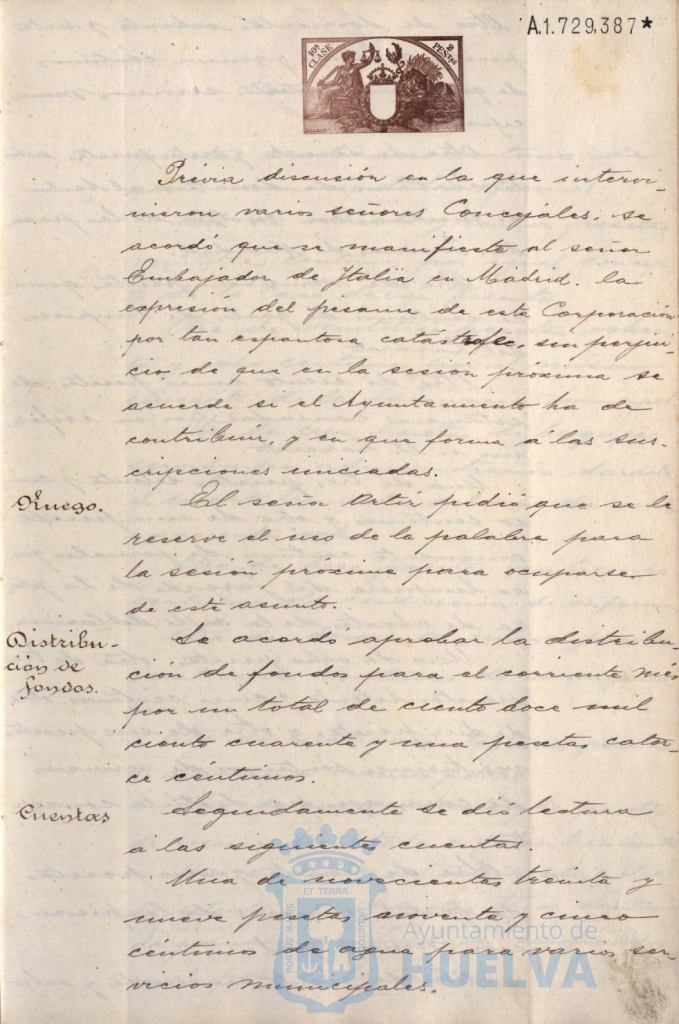 A.1.729.387*
10ª CLASE
2 PESETAS
Prévia discusión en la que intervi-
nieron varios señores Concejáles, se
acordó que se manifieste al señor
Embajador de Italia en Madrid, la
expresión del pésame de esta Corporación
por tan espantosa catástrofe, sin perjui-
cio de que en la sesión próxima se
acuerde si el Ayuntamiento ha de
contribuir, y en que forma á las sus-
cripciones iniciadas.
Ruego.
El señor Ortiz pidió que se le
reserve el uso de la palabra para
la sesión próxima para ocuparse
de este asunto.
Distribu-
ción de
fondos.
Se acordó aprobar la distribu-
ción de fondos para el corriente més
por un total de ciento doce mil
ciento cuarenta y una pesetas cator-
ce céntimos.
Cuentas
Seguidamente se dió lectura
á las siguientes cuentas.
Una de novecientas treinta y
nueve pesetas noventa y cinco
céntimos de agua para varios ser-
vicios municipales.
PORTUS MARIS ET TERRÆ CUSTODIA
Ayuntamiento de
HUELVA